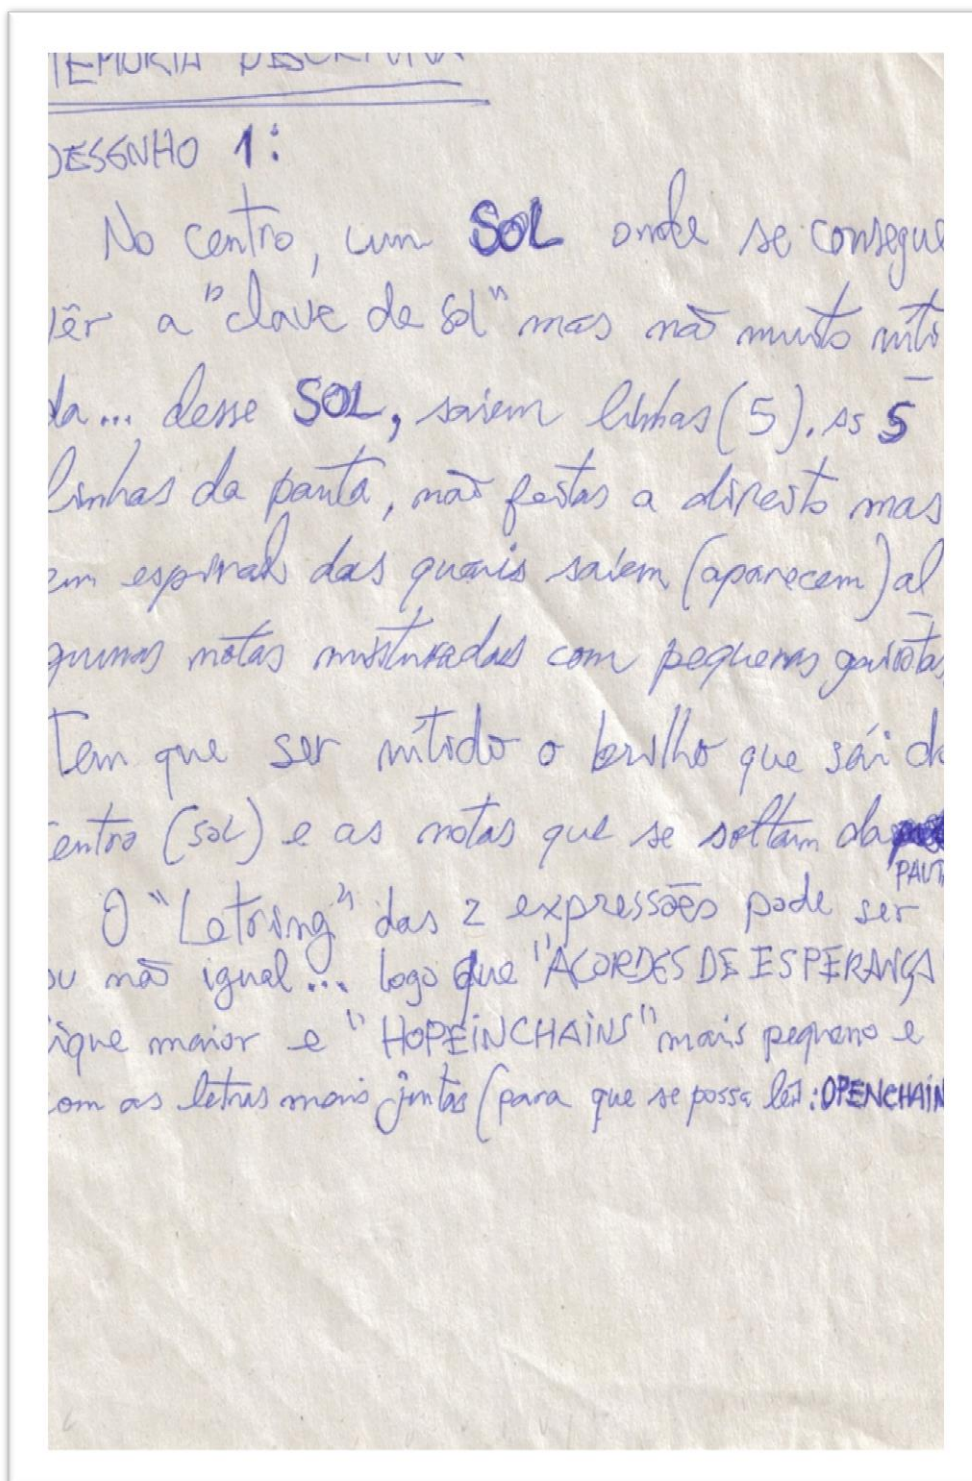 MEMÓRIA DESCRITIVA
DESENHO 1:
No centro, um SOL onde se consegue
vêr a "clave de Sol" mas não muito níti
da... desse SOL, saiem linhas (5). As 5
linhas da pauta, não feitas a direito mas
em espiral das quais saiem (aparecem) al
gumas notas misturadas com pequenas gaivotas
Tem que ser nítido o brilho que sái do
centro (sol) e as notas que se soltam da
PAUTA
O "Letring" das 2 expressões pode ser
ou não igual... logo que "ACORDES DE ESPERANÇA
fique maior e "HOPEiNCHAiNS" mais pequeno e
com as letras mais juntas (para que se possa ler: OPENCHAiN